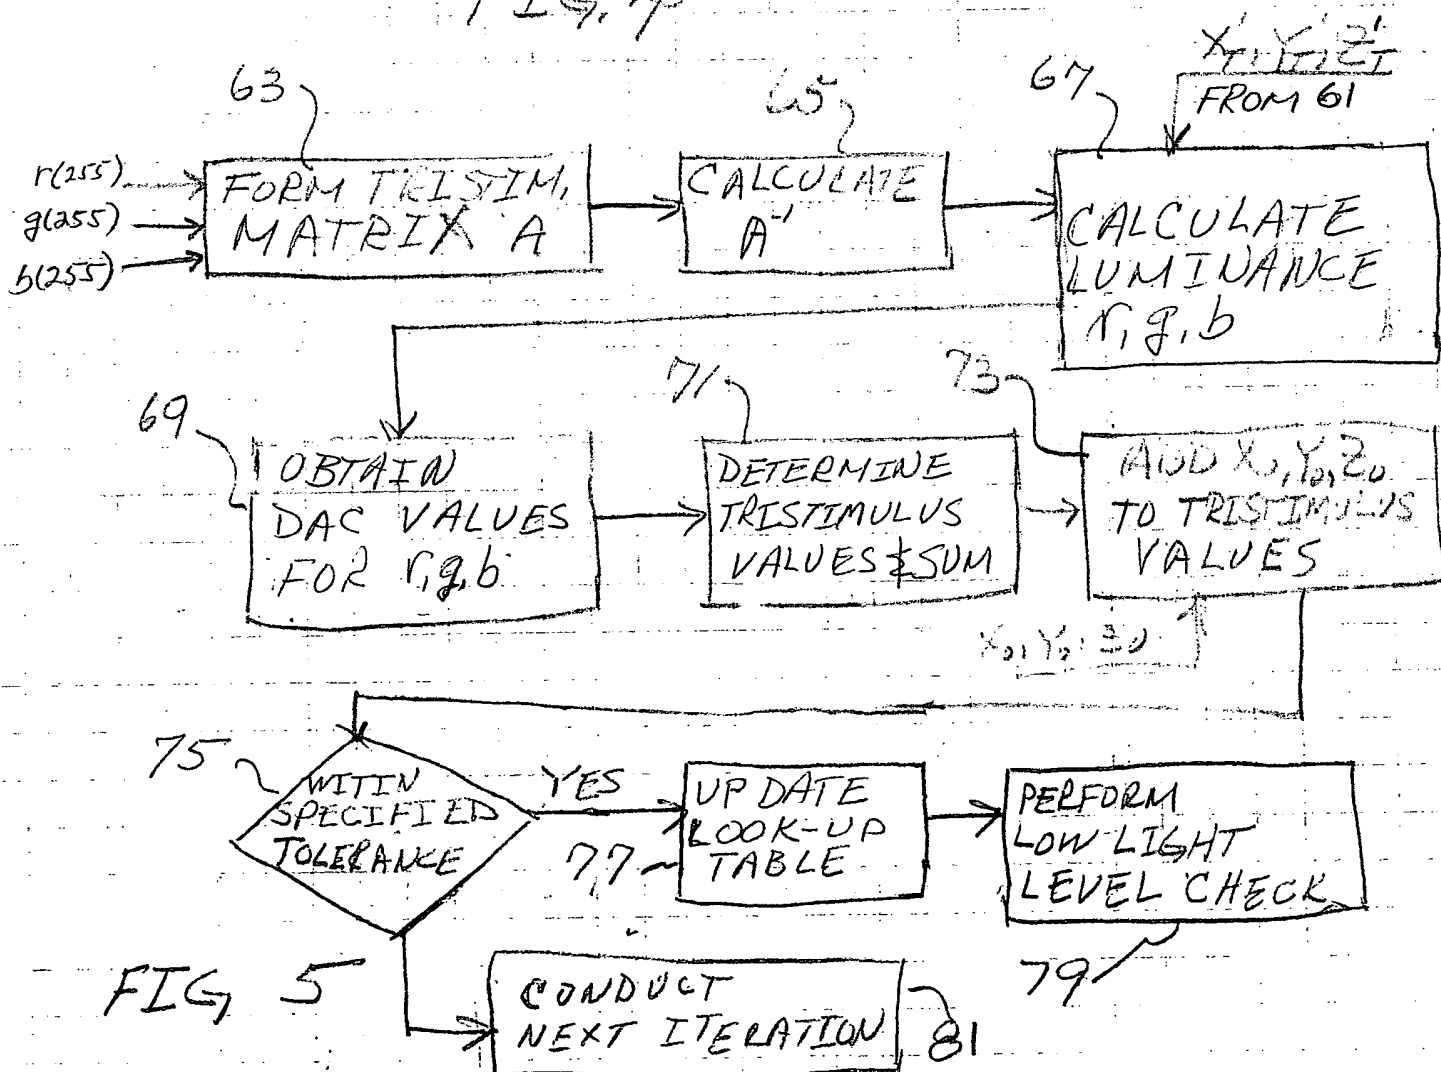 63
65
67
X'T, Y'T, Z'T
FROM 61
r(255)
g(255)
b(255)
FORM TRISTIM.
MATRIX A
CALCULATE
A-1
CALCULATE
LUMINANCE
r, g, b
69
71
73
OBTAIN
DAC VALUES
FOR r,g,b
DETERMINE
TRISTIMULUS
VALUES & SUM
ADD X0, Y0, Z0
TO TRISTIMULUS
VALUES
X0, Y0, Z0
75
WITIN
SPECIFIED
TOLERANCE
YES
77
UPDATE
LOOK-UP
TABLE
PERFORM
LOW LIGHT
LEVEL CHECK
79
FIG, 5
CONDUCT
NEXT ITERATION
81